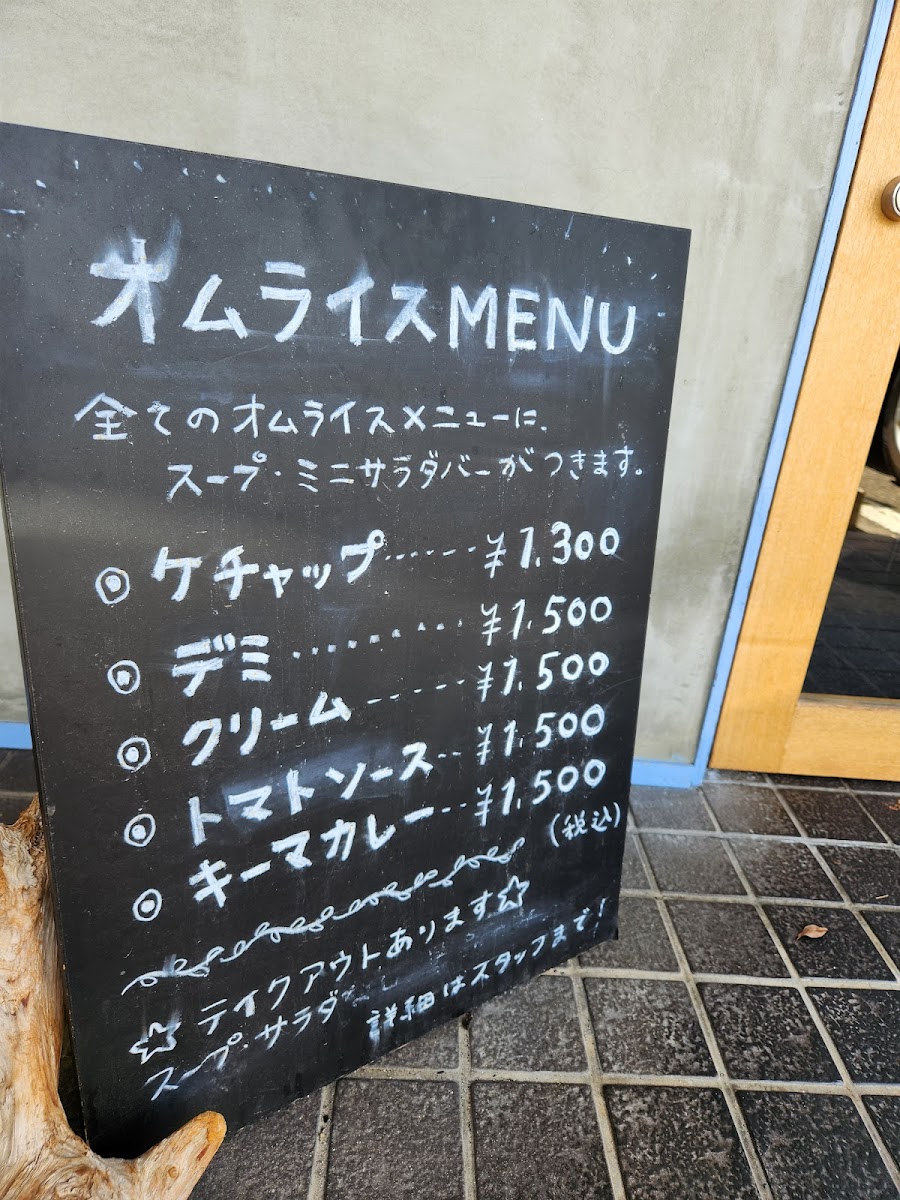 オムライスMENU
全てのオムライスメニューに、
スープ・ミニサラダバーがつきます。
◎ ケチャップ‥‥‥¥1.300
◎ デミ‥‥‥‥¥1.500
◎ クリーム‥‥‥¥1.500
◎ トマトソース‥¥1.500
◎ キーマカレー‥¥1.500
(税込)
☆ テイクアウトあります☆
スープ・サラダ
詳細はスタッフまで!